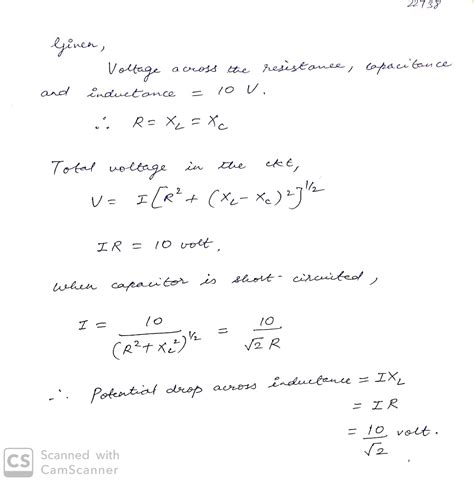 22938
Given,
Voltage across the resistance, capacitance
and inductance = 10 V.
∴ R = X_L = X_C
Total voltage in the ckt,
V = I[R² + (X_L - X_C)²]^1/2
IR = 10 volt.
When capacitor is short-circuited,
I = 10/(R² + X_L²)^1/2 = 10/√2 R
∴ Potential drop across inductance = IX_L
= IR
= 10/√2 volt.
CS Scanned with
CamScanner